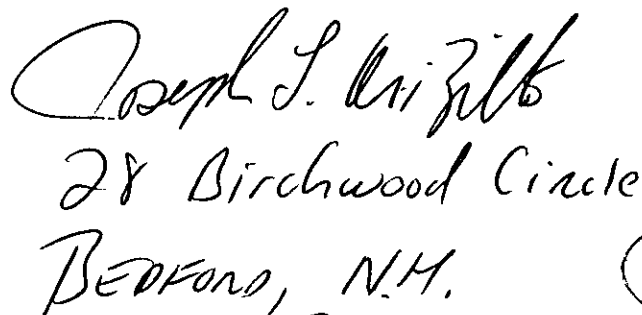 Joseph L.
28 Birchwood Circle
BEDFORD, N.H.